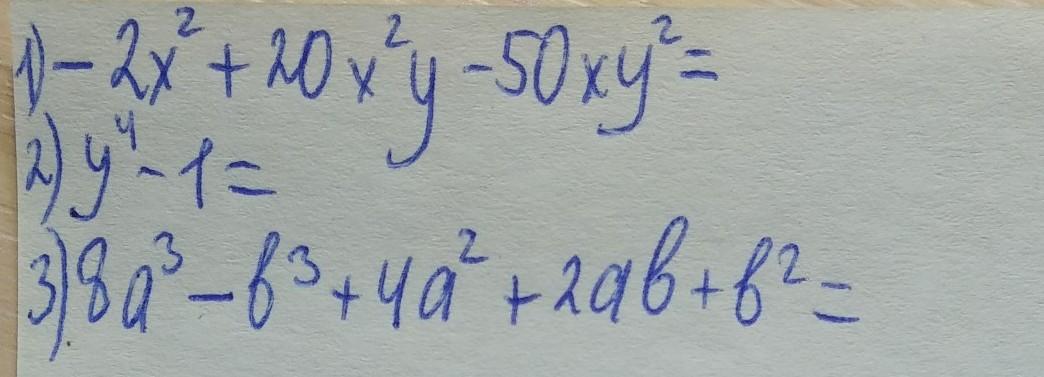 1) -2x²+20x²y-50xy²=
2) y⁴-1=
3) 8a³-b³+4a²+2ab+b²=